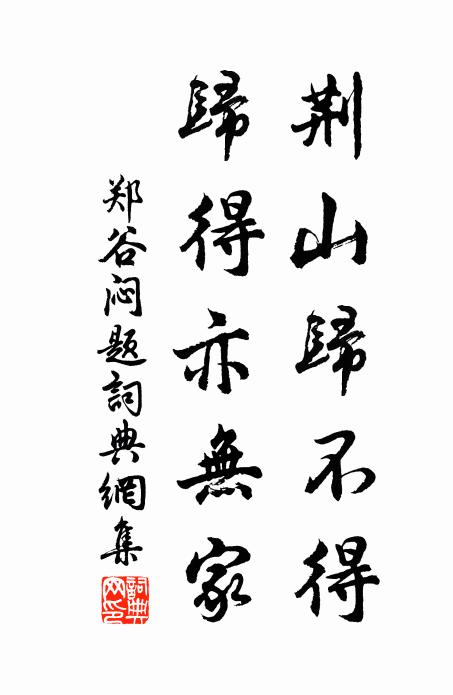 荆山歸不得
歸得亦無家
郑谷闷题詞典網集
詞典網印